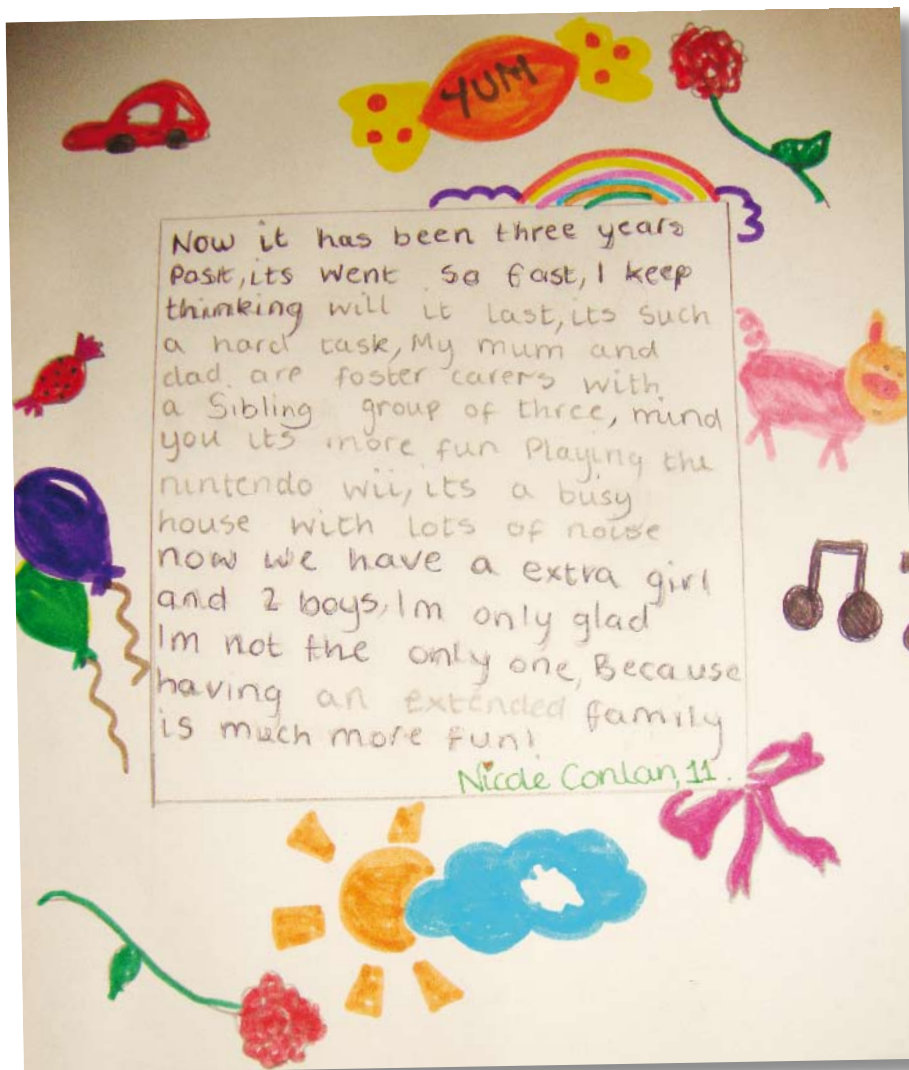 YUM
Now it has been three years
Past, its went so fast, I keep
thinking will it last, its such
a hard task, My mum and
dad are foster carers with
a Sibling group of three, mind
you its more fun Playing the
nintendo wii, its a busy
house with lots of noise
now we have a extra girl
and 2 boys, Im only glad
Im not the only one, Because
having an extended family
is much more fun!
Nicole Conlan, 11.